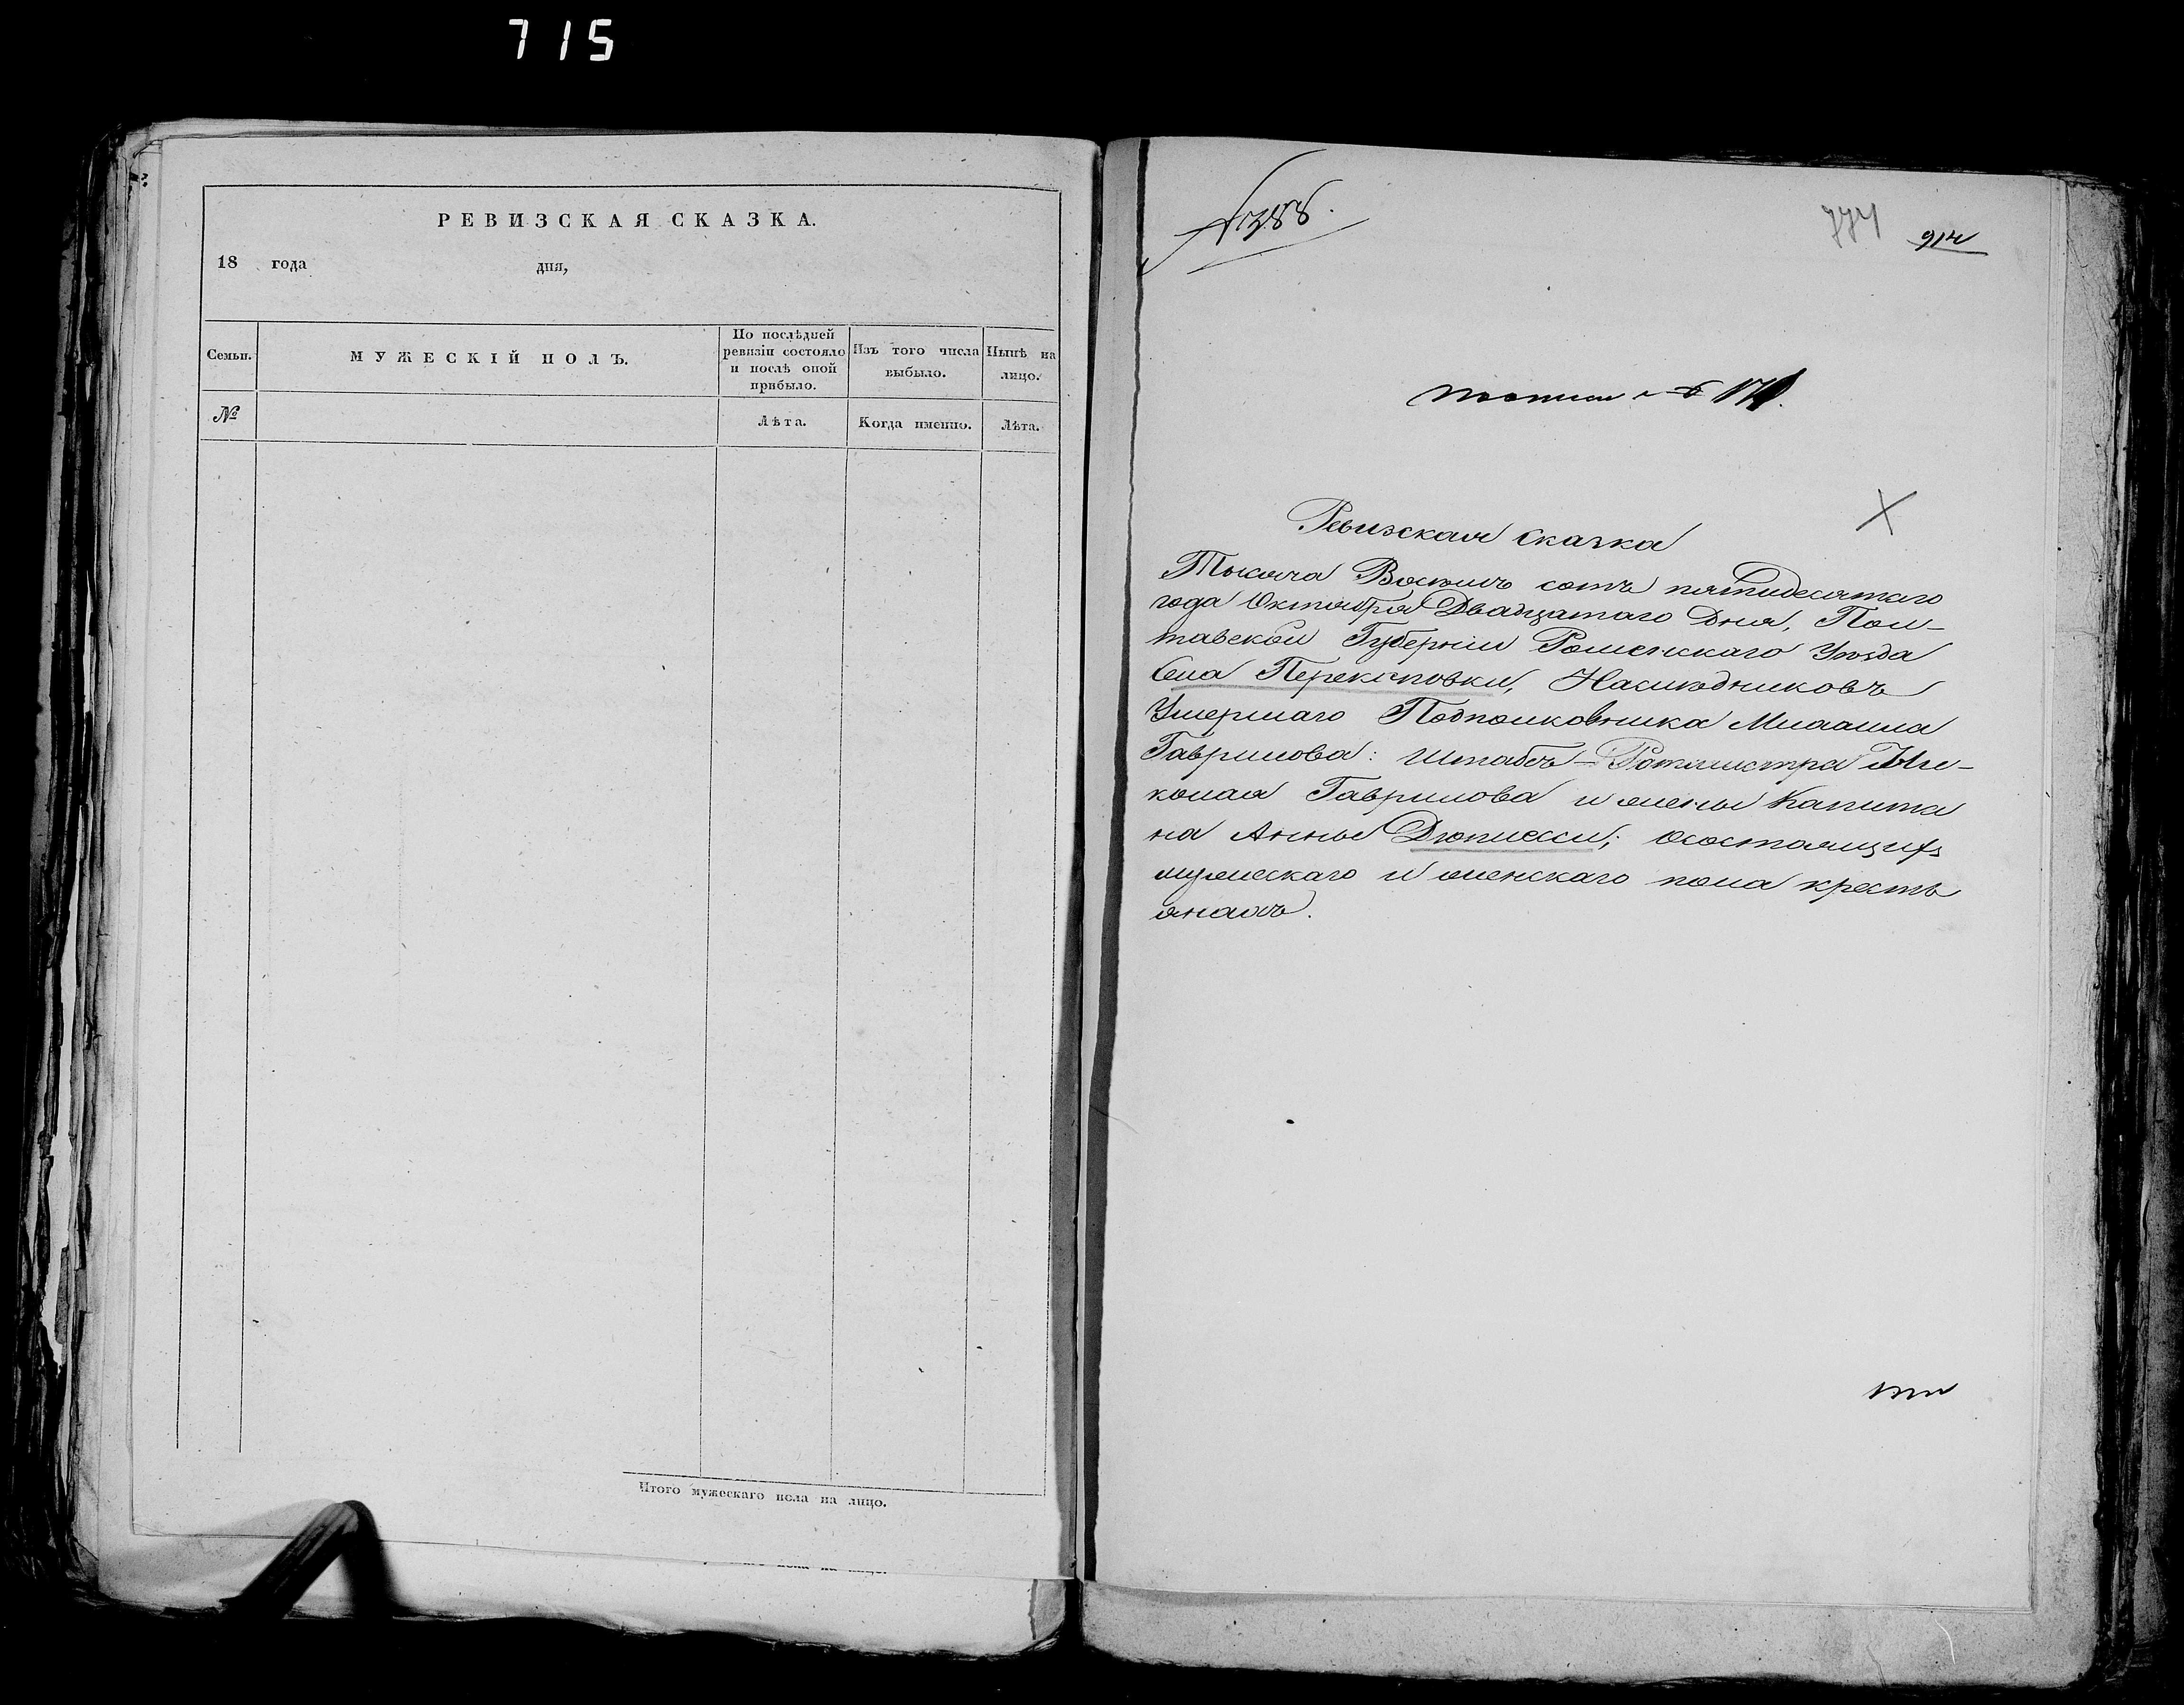 715
РЕВИЗСКАЯ СКАЗКА.
18 года дня,
Семьи.
МУЖЕСКІЙ ПОЛЪ.
По послѣдней ревизіи состояло и послѣ оной прибыло.
Изъ того числа выбыло.
Нынѣ на лицо.
№
Лѣта.
Когда именно.
Лѣта.
Итого мужескаго пола на лицо.
№ 388.
774
914
Ревизская сказка
Тысяча Восемь сотъ пятидесятаго
года Октября Двадцатаго Дня, Пол-
тавской Губерніи Роменскаго Уѣзда
Села Перекоповки, Наслѣдниковъ
Умершаго Подполковника Михаила
Гаврилова: Штабсъ-Ротмистра Ни-
колая Гаврилова и жены Капита
на Анны Дюплесси; осостоящихъ
мужескаго и женскаго пола кресть
янахъ.